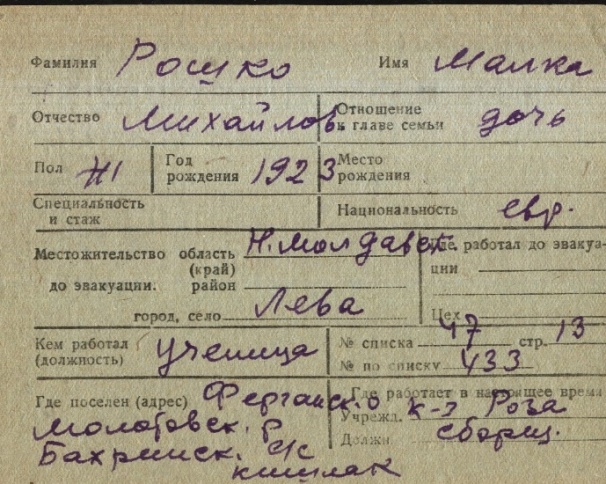 Фамилия Рошко Имя Малка
Отчество Михайлов Отношение к главе семьи дочь
Пол Ж Год рождения 1923 Место рождения
Специальность и стаж Национальность евр.
Местожительство область (край) Н. Молдавск. Где работал до эвакуа-
до эвакуации. район ции
город, село Лева Цех
Кем работал (должность) ученица № списка 47 стр. 13
№ по списку 433
Где поселен (адрес) Ферганск. о Где работает в настоящее время
Молотовск. р. Учрежд. к-з Роза
Бахринск. с/с Должн. сборщ.
кишлак